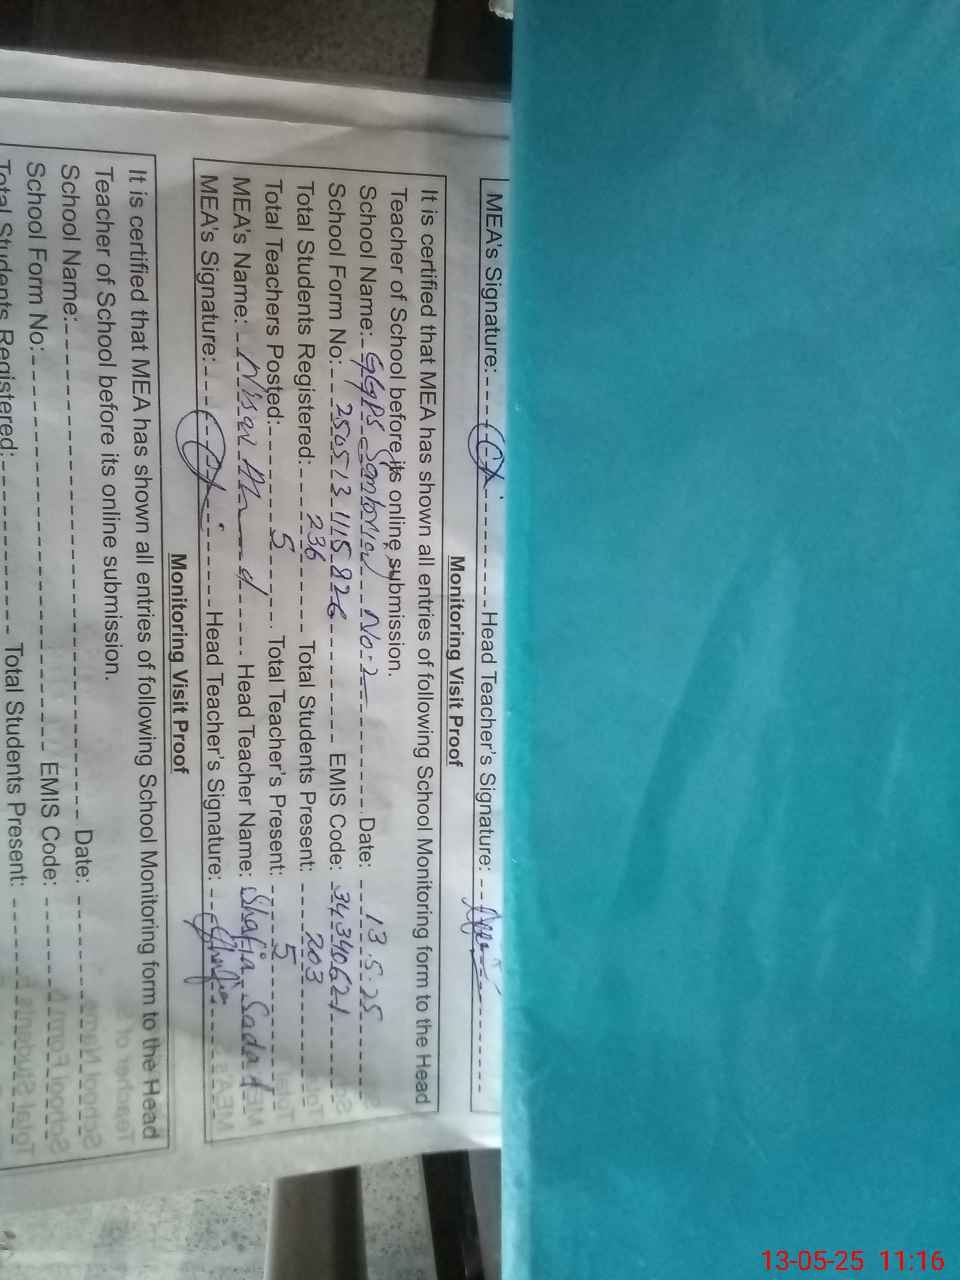 MEA's Signature: Head Teacher's Signature:
Monitoring Visit Proof
It is certified that MEA has shown all entries of following School Monitoring form to the Head
Teacher of School before its online submission.
School Name: GGPS No: 2 Date: 13.5.25
School Form No: 250513 115826 EMIS Code: 34340621
Total Students Registered: 236 Total Students Present: 203
Total Teachers Posted: 5 Total Teacher's Present: 5
MEA's Name: Nisar Ahmad Head Teacher Name: Shafia Sadaf
MEA's Signature: Head Teacher's Signature: Shafia
Monitoring Visit Proof
It is certified that MEA has shown all entries of following School Monitoring form to the Head
Teacher of School before its online submission.
School Name: Date:
School Form No: EMIS Code:
Total Students Registered: Total Students Present:
13-05-25 11:16